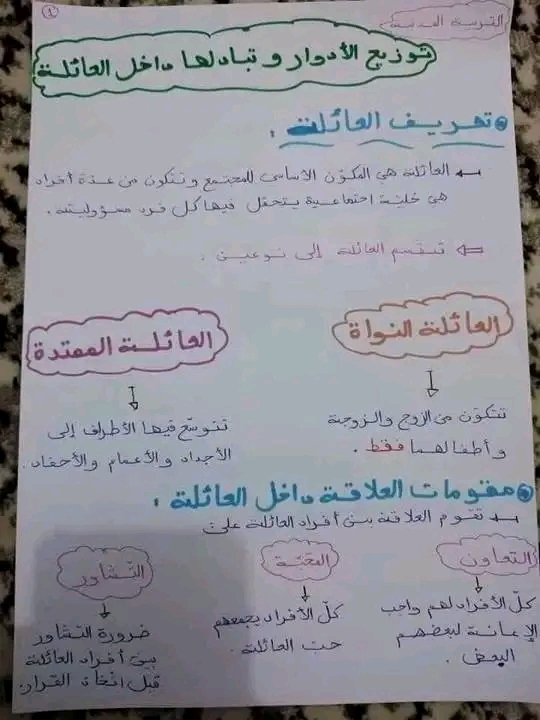 التربية المدنية
1
توزيع الأدوار و تبادلها داخل العائلة
تعريف العائلة :
العائلة هي المكوّن الأساسي للمجتمع و تتكون من عدة أفراد
هي خلية اجتماعية يتحمّل فيها كل فرد مسؤوليته .
تنقسم العائلة إلى نوعين :
العائلة النواة
تتكوّن من الزوج والزوجة
و أطفالهما فقط .
العائلة الممتدة
تتوسّع فيها الأطراف إلى
الأجداد والأعمام والأحفاد .
مقومات العلاقة داخل العائلة :
تقوم العلاقة بين أفراد العائلة على
التعاون
كلّ الأفراد لهم واجب
الإعانة لبعضهم
البعض .
المحبّة
كلّ الأفراد يجمعهم
حب العائلة .
التّشاور
ضرورة التشاور
بين أفراد العائلة
قبل اتخاذ القرار .